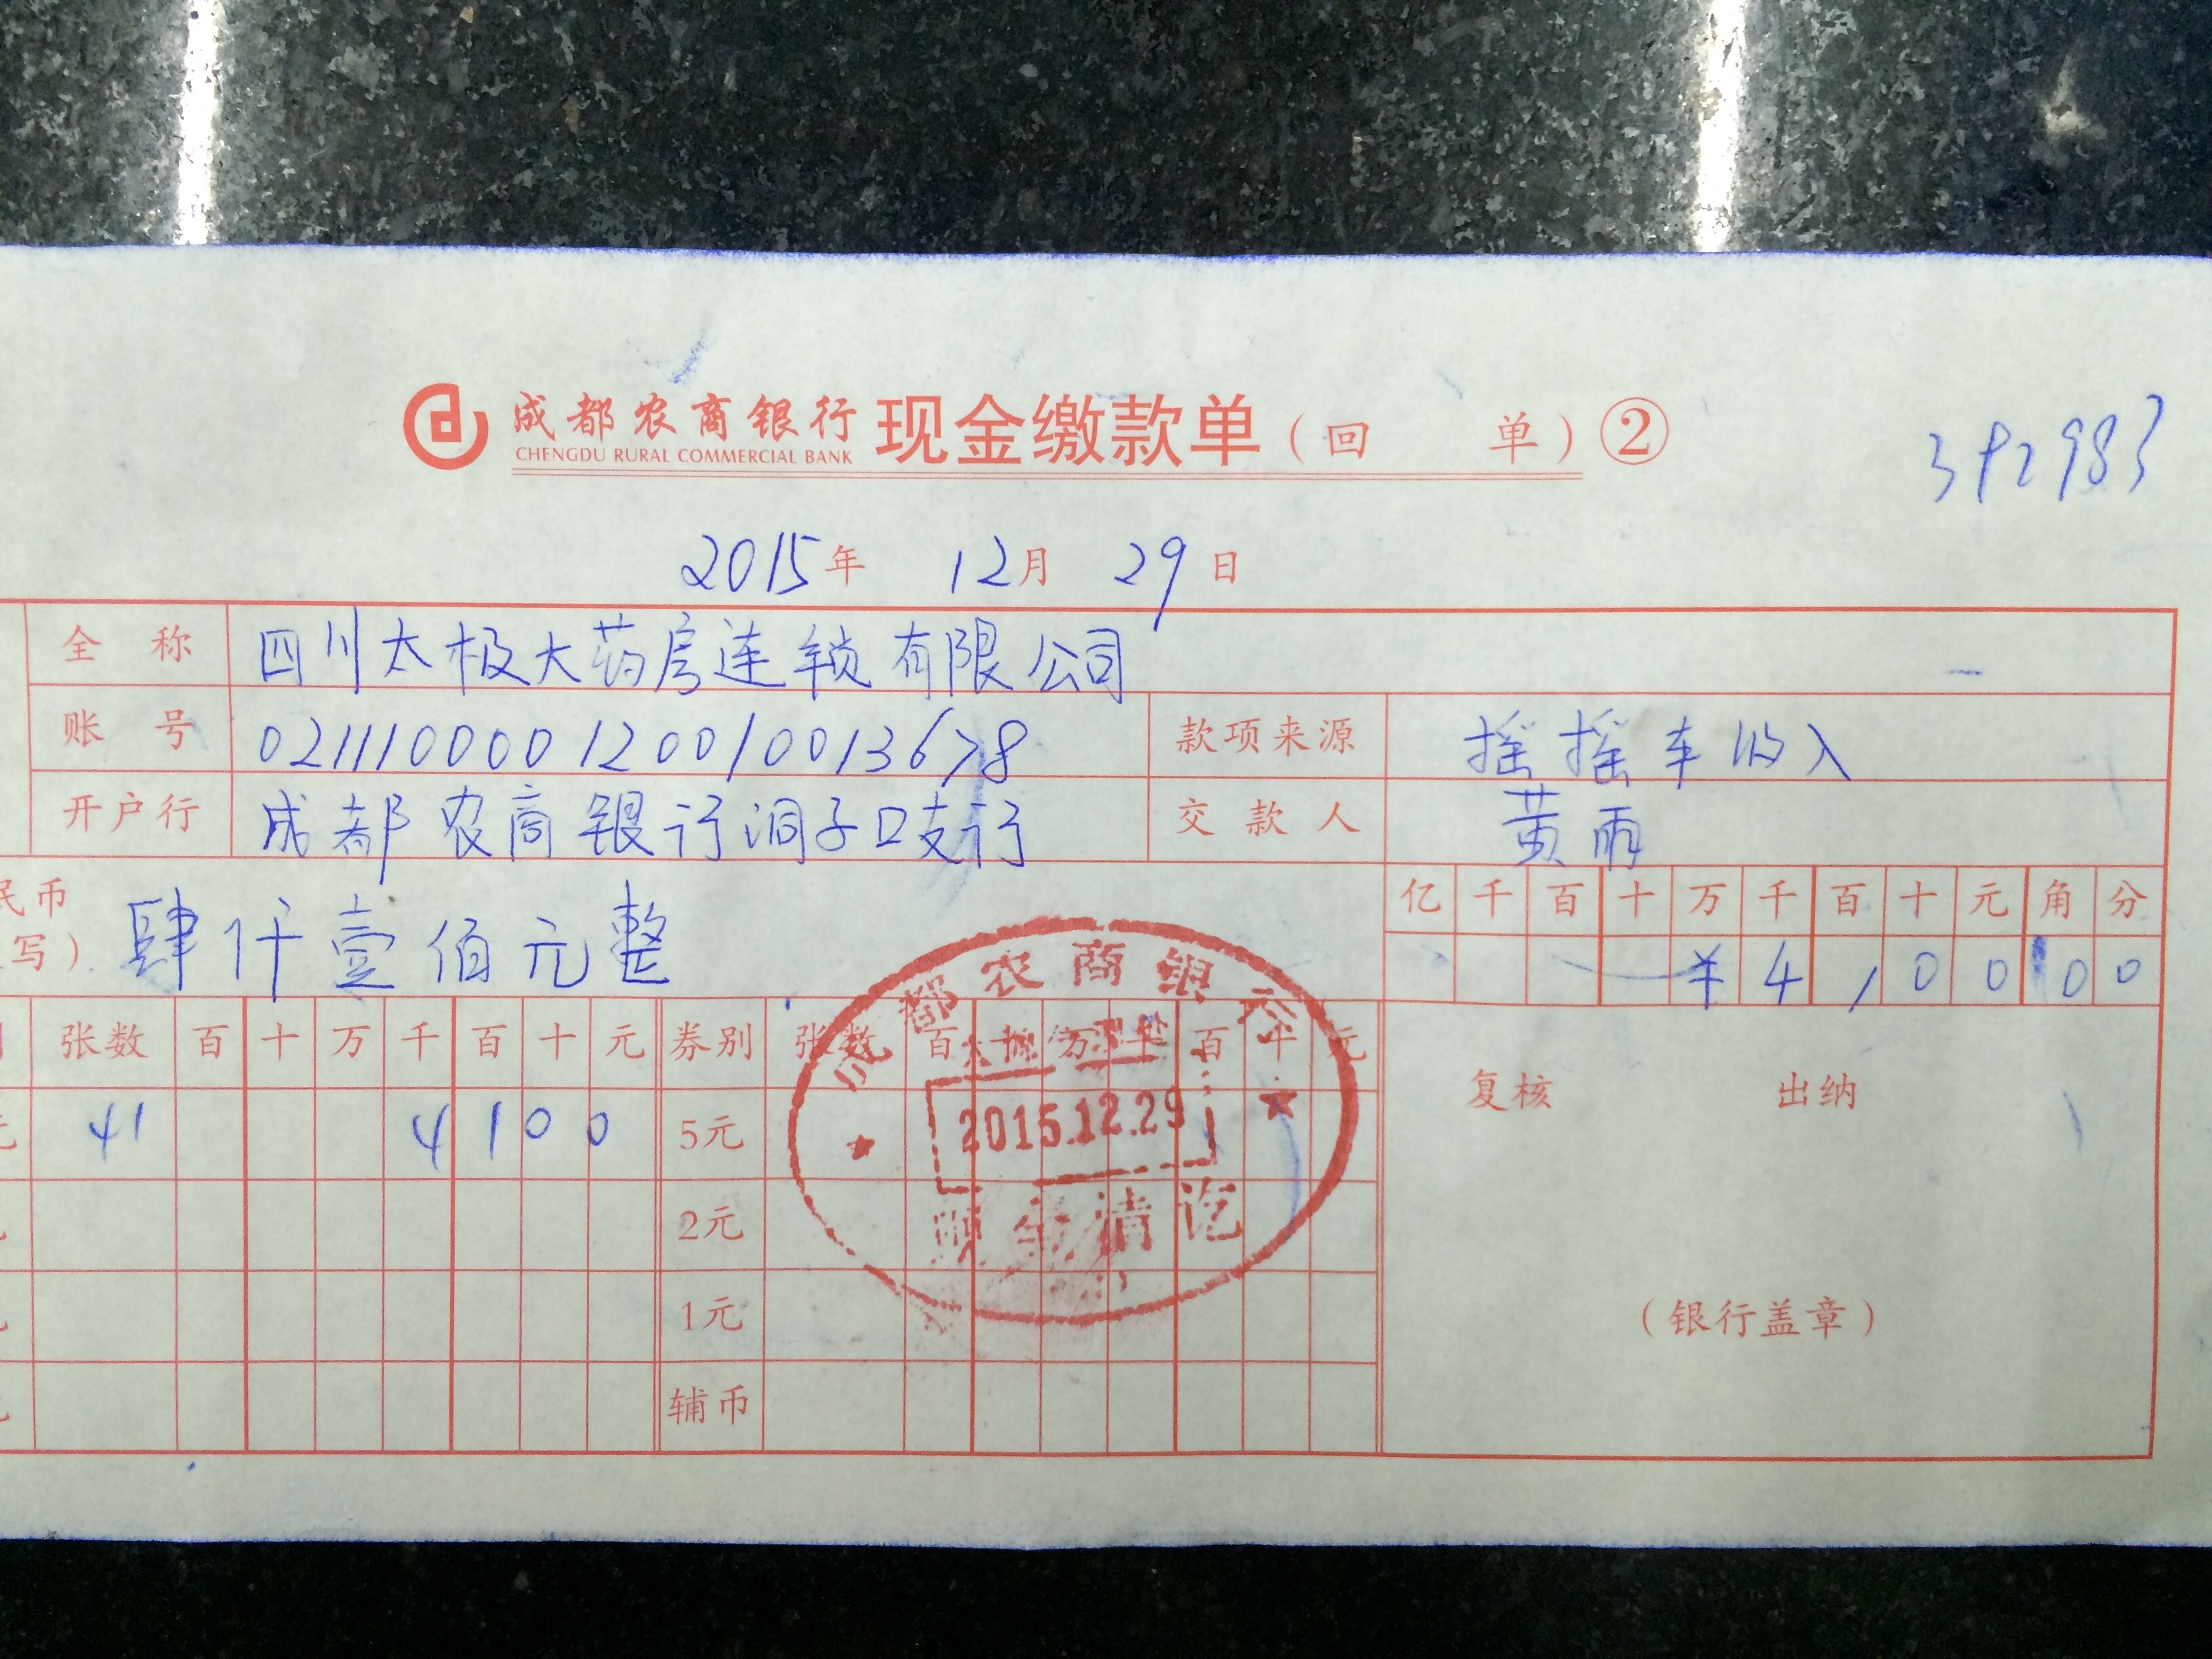 成都农商银行 现金缴款单（回 单）②
CHENGDU RURAL COMMERCIAL BANK
392983
2015年 12月 29日
全 称 四川太极大药房连锁有限公司
账 号 021110000120010013678 款项来源 摇摇车收入
开户行 成都农商银行洞子口支行 交款人 黄雨
亿 千 百 十 万 千 百 十 元 角 分
民币
写） 肆仟壹佰元整 ¥ 4 1 0 0 0 0
张数 百 十 万 千 百 十 元 券别 张数 百 十 万 千 百 十 元
元 41 4 1 0 0 5元
2元
1元
辅币
复核 出纳
（银行盖章）
成都农商银行
2015.12.29
现金清讫